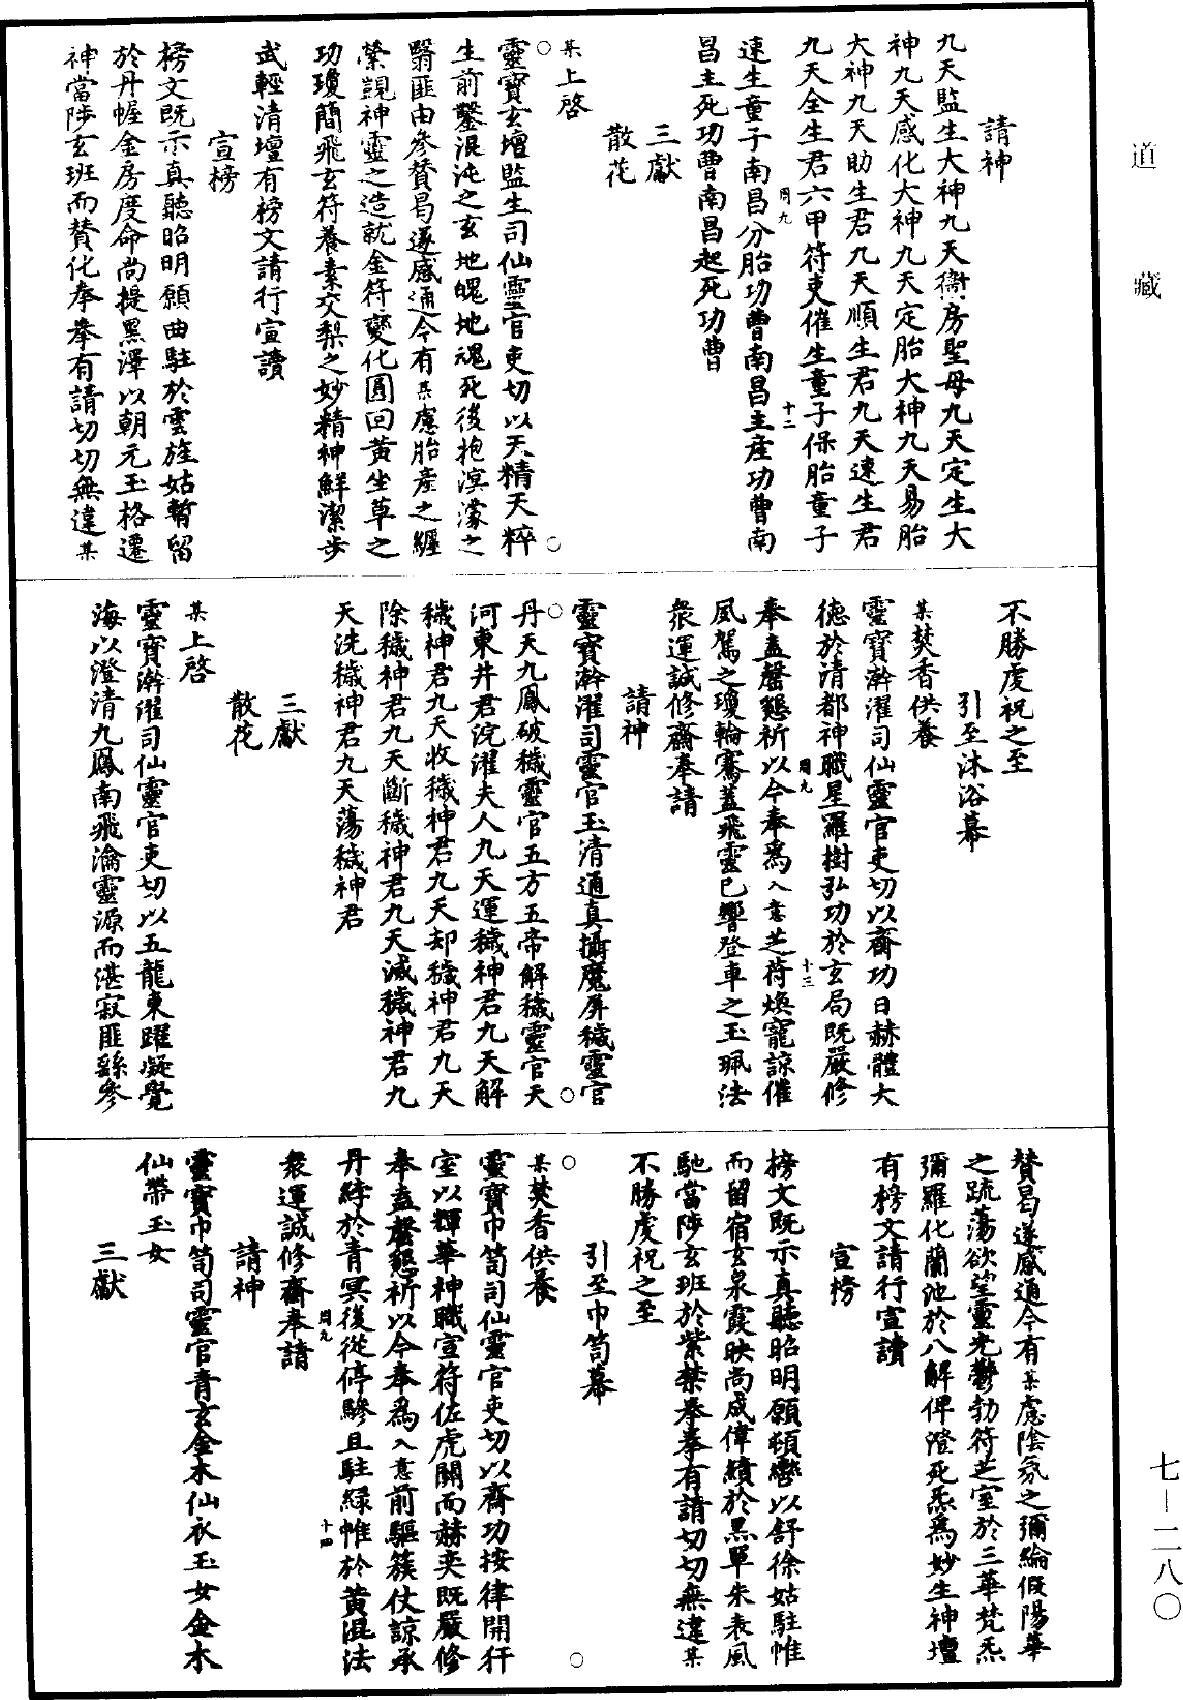 道藏
請神
九天監生大神九天衞房聖母九天定生大
神九天感化大神九天定胎大神九天易胎
大神九天助生君九天順生君九天速生君
九天全生君六甲符吏催生童子保胎童子
周九
十二
速生童子南昌分胎功曹南昌主產功曹南
昌主死功曹南昌起死功曹
三獻
散花
某上啓
靈寶玄壇監生司仙靈官吏切以天精天粹
生前鑿混沌之玄地魄地魂死後抱溟濛之
翳匪由參贊曷遂感通今有某慮胎產之纏
縈覬神靈之造就金符變化圓回黃坐草之
功瓊簡飛玄符養素交梨之妙精神鮮潔步
武輕清壇有榜文請行宣讀
宣榜
榜文既示真聽昭明願曲駐於雲旌姑暫留
於丹幄金房度命尚提黑澤以朝元玉格遷
神當陟玄班而贊化奉拳有請切切無違某
不勝虔祝之至
引至沐浴幕
某焚香供養
靈寶澣濯司仙靈官吏切以齋功日赫體大
德於清都神職星羅樹弘功於玄局既嚴修
周九
十三
奉盍罄懇祈以今奉爲入意芝苻煥寵諒催
風駕之瓊輪騫蓋飛靈已響登車之玉珮法
衆運誠修齋奉請
請神
靈寶澣濯司靈官玉清通真攝魔屏穢靈官
丹天九鳳破穢靈官五方五帝解穢靈官天
河東井君浣濯夫人九天運穢神君九天解
穢神君九天收穢神君九天却穢神君九天
除穢神君九天斷穢神君九天滅穢神君九
天洗穢神君九天蕩穢神君
三獻
散花
某上啓
靈寶澣濯司仙靈官吏切以五龍東躍凝覺
海以澄清九鳳南飛瀹靈源而湛寂匪繇參
贊曷遂感通今有某慮陰氛之彌綸假陽華
之疏蕩欲望靈光鬱勃符芝室於三華梵炁
彌羅化蘭池於八解俾澄死炁爲妙生神壇
有榜文請行宣讀
宣榜
榜文既示真聽昭明願頓轡以舒徐姑駐帷
而留宿玄泉霞映尚成偉績於黑單朱表風
馳當陟玄班於紫禁拳拳有請切切無違某
不勝虔祝之至
引至巾笥幕
某焚香供養
靈寶巾笥司仙靈官吏切以齋功按律開扞
室以輝華神職宣符佐虎關而赫奕既嚴修
奉盍罄懇祈以今奉爲入意前驅簇仗諒承
丹綍於青冥後從停驂且駐綠帷於黃混法
周九
十四
衆運誠修齋奉請
請神
靈寶巾笥司靈官青玄金木仙衣玉女金木
仙帶玉女
三獻
七—二八〇